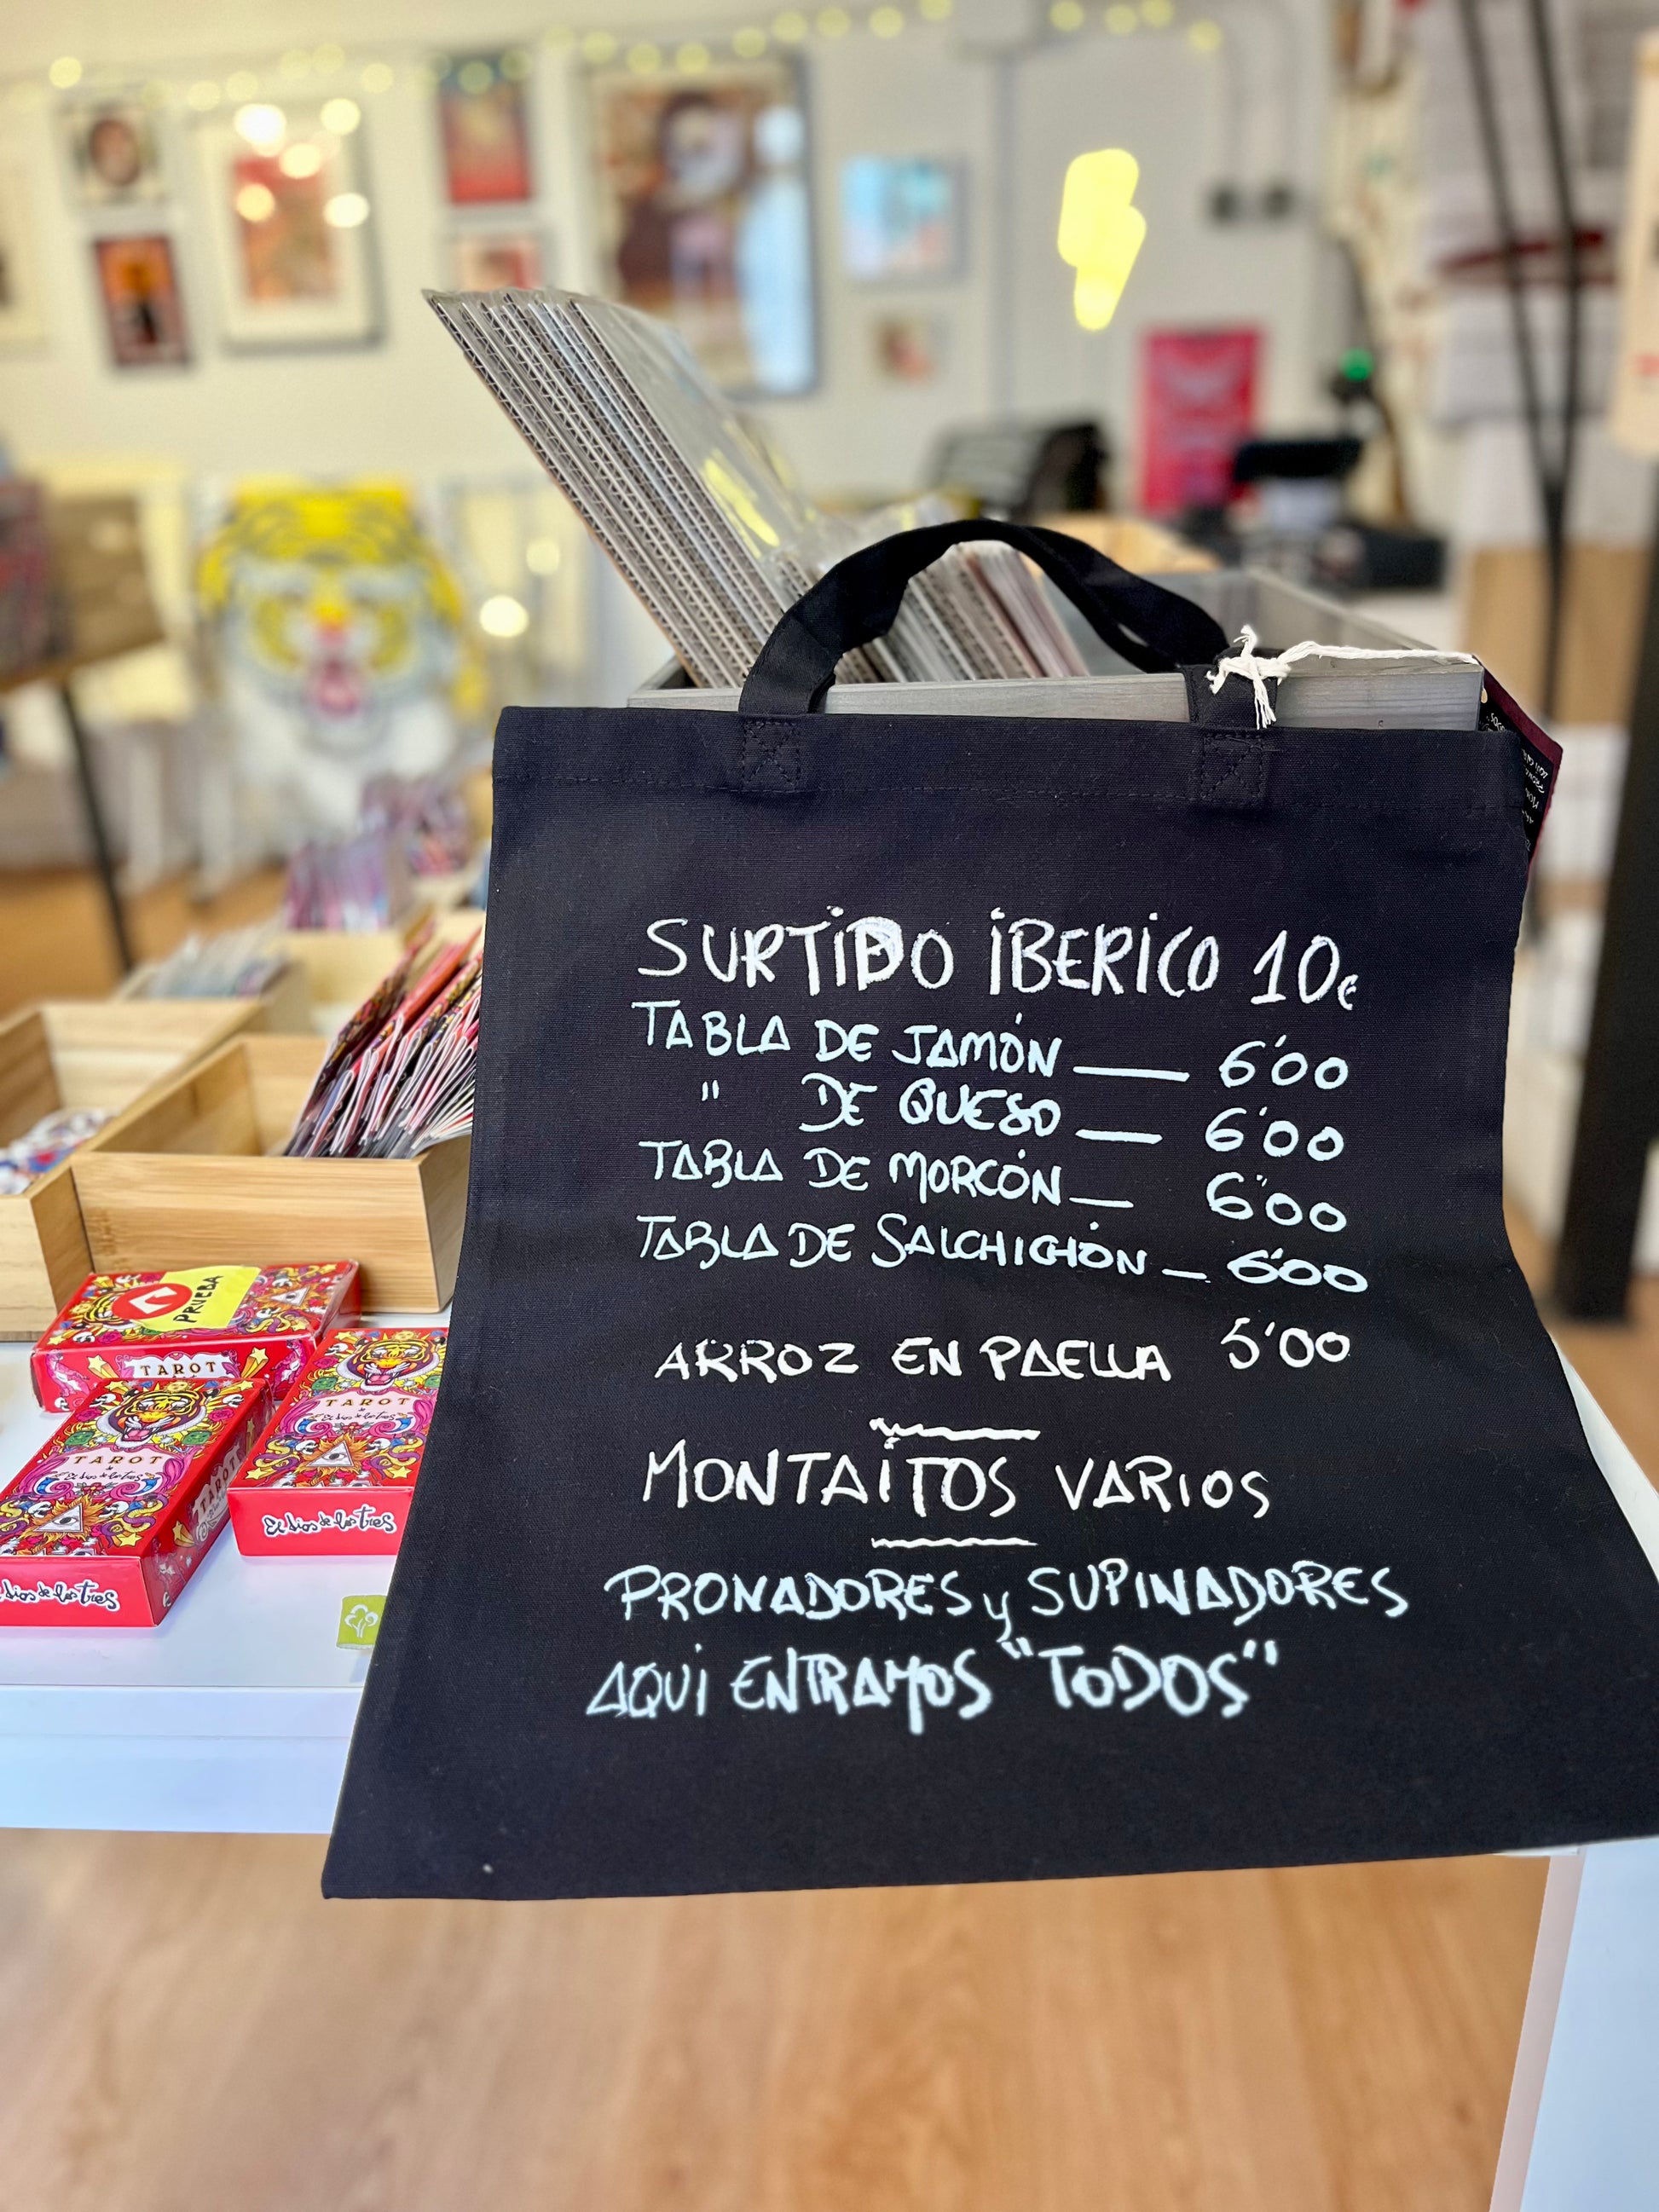 SURTIDO IBERICO 10€
TABLA DE JAMÓN — 6'00
" DE QUESO — 6'00
TABLA DE MORCÓN — 6'00
TABLA DE SALCHICHÓN — 6'00
ARROZ EN PAELLA 5'00
MONTAITOS VARIOS
PRONADORES y SUPINADORES
AQUI ENTRAMOS "TODOS"
PRUEBA
TAROT
TAROT
de
El dios de los tres
El dios de los tres
TAROT
de
El dios de los tres
TAROT
dios de los tres